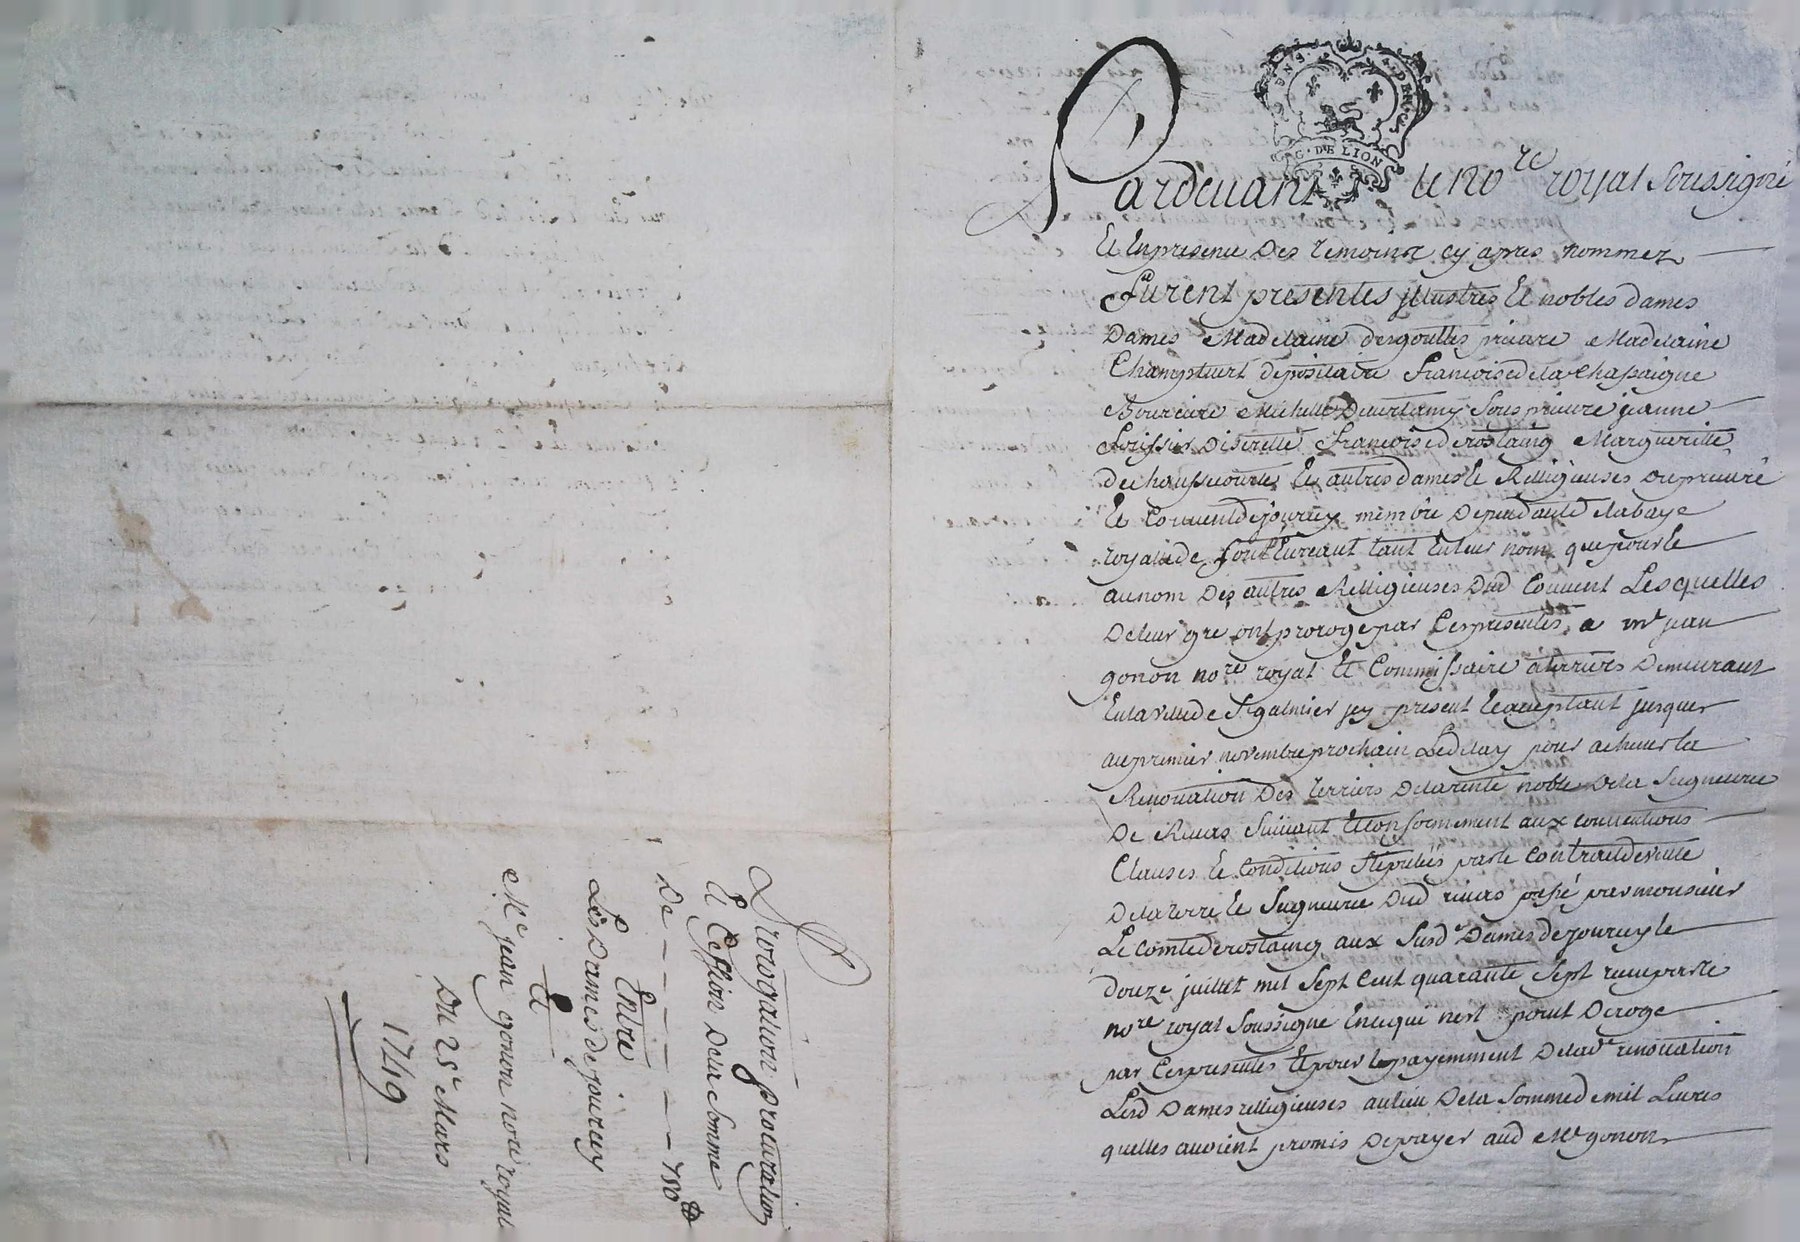 G. DE LION
Pardevant le no.re royal soussigné
Et En presence Des temoins cy apres nommez
furent presentes illustres Et nobles dames
Dames Madelaine desgouttes prieure Madelaine
Champtuert depositaire francoise de la Chassaigne
Boursiere Michelle sous prieure jeanne
Discrette francoise de rostaing Margueritte
de chaussecourte Et autres dames Et Religieuses du prieuré
Et Couuent de jourcey membre Dependant de labaye
royalle de font Eureaut tant En leur nom que pour Et
au nom Des autres Religieuses dud Couuent Lesquelles
De leur gre ont prorogé par Ces presentes a Mr jean
gonon no.re royal Et Commissaire a terriers Demeurant
En la ville de St galmier icy present Et acceptant jusques
au premier novembre prochain Le delay pour acheuer la
Renouation Des terriers De la rente noble De la Seigneurie
De Riuas Suiuant Et conformement aux conuentions
Clauses Et Conditions stipulées par le Contract de vente
De la terre Et Seigneurie Dud riuas passé par monsieur
Le comte de rostaing aux susd.e Dames de jourcey le
douze juillet mil sept Cent quarante sept receu par le
no.re royal Soussigne En ce qui nest point Deroge
par Ces presentes Et pour le payemment De lad.e renouation
Lesd Dames relligieuses au lieu De la somme de mil Liures
quelles auoient promis De payer aud Me gonon
Prorogation procuration
Et Cession De la Somme
De - - - - - - 750
Entre
Les Dames de jourcey
Et
Me jean gonon no.re royal
Du 25e Mars
1749